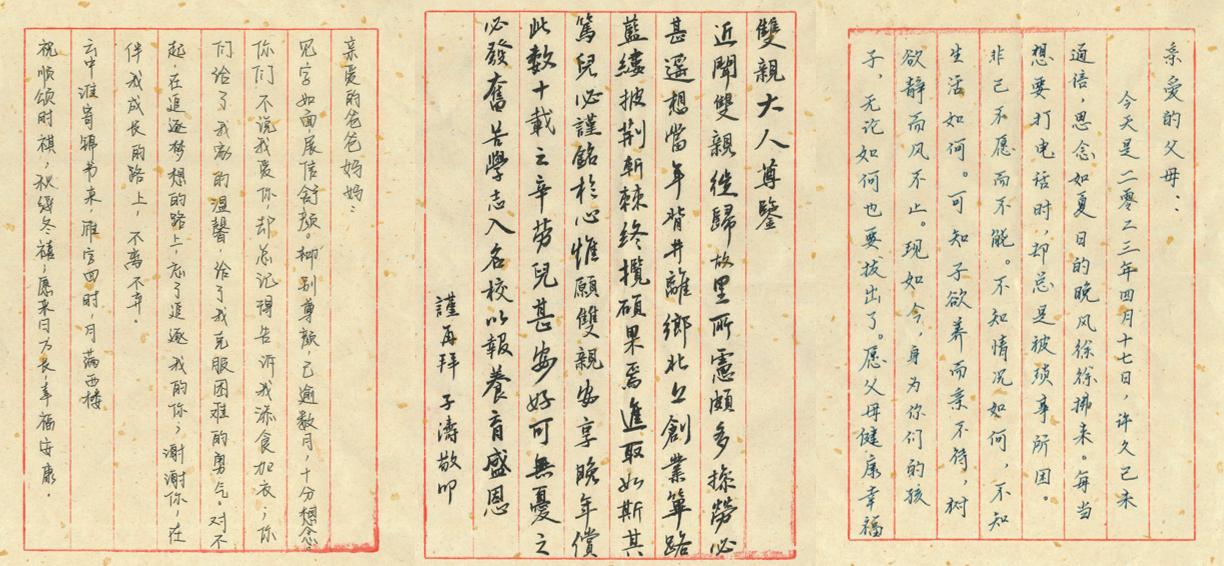 亲爱的父母：
今天是二零二三年四月十七日，许久已未
通信，思念如夏日的晚风徐徐拂来。每当
想要打电话时，却总是被琐事所困。
非己不愿而不能。不知情况如何，不知
生活如何。可知子欲养而亲不待，树
欲静而风不止。现如今，身为你们的孩
子，无论如何也要拔出了。愿父母健康幸福
雙親大人尊鑒
近聞雙親徙歸故里所憲頗多操勞必
甚遥想當年背井離鄉北上創業篳路
藍縷披荆斬棘終攬碩果焉進取如斯其
篤兒必謹銘於心惟願雙親安享晚年償
此數十載之辛勞兒甚安好可無憂之
必發奮苦學志入名校以報養育盛恩
謹再拜 子濤敬叩
亲爱的爸爸妈妈：
见字如面，展信舒颜。柳别尊颜，已逾数月，十分想念。
你们不说我爱你，却总记得告诉我添食加衣；你
们给了我家的温馨，给了我克服困难的勇气。对不
起，在追逐梦想的路上，忘了追逐我的你；谢谢你，在
伴我成长的路上，不离不弃。
云中谁寄锦书来，雁字回时，月满西楼
祝顺颂时祺，秋绥冬禧；愿来日方长，幸福安康。